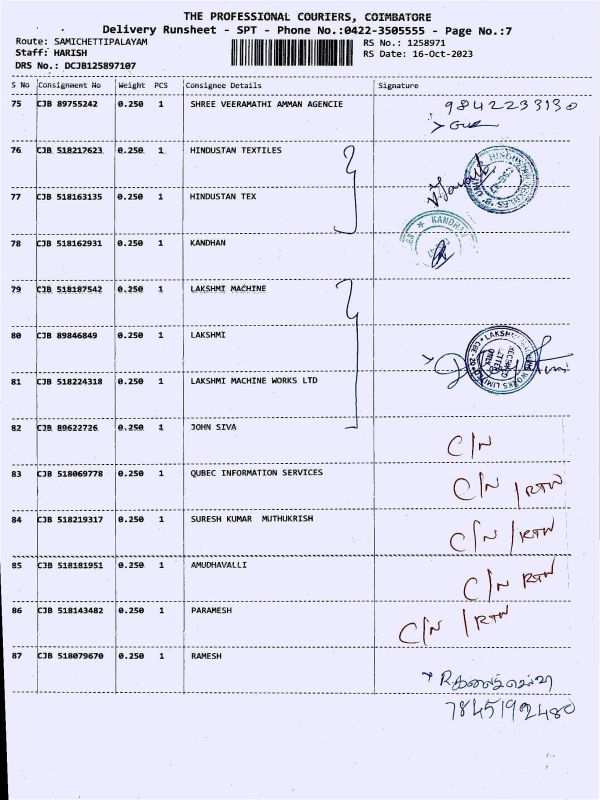 THE PROFESSIONAL COURIERS, COIMBATORE
Delivery Runsheet - SPT - Phone No.:0422-3505555 - Page No.:7
Route: SAMICHETTIPALAYAM RS No.: 1258971
Staff: HARISH RS Date: 16-Oct-2023
DRS No.: DCJB125897107
S No Consignment No Weight PCS Consignee Details Signature
75 CJB 89755242 0.250 1 SHREE VEERAMATHI AMMAN AGENCIE 9842233130
76 CJB 518217623 0.250 1 HINDUSTAN TEXTILES
77 CJB 518163135 0.250 1 HINDUSTAN TEX
78 CJB 518162931 0.250 1 KANDHAN
79 CJB 518187542 0.250 1 LAKSHMI MACHINE
80 CJB 89846849 0.250 1 LAKSHMI
81 CJB 518224318 0.250 1 LAKSHMI MACHINE WORKS LTD
82 CJB 89622726 0.250 1 JOHN SIVA C/N
83 CJB 518069778 0.250 1 QUBEC INFORMATION SERVICES C/N /RTN
84 CJB 518219317 0.250 1 SURESH KUMAR MUTHUKRISH C/N /RTN
85 CJB 518181951 0.250 1 AMUDHAVALLI C/N RTN
86 CJB 518143482 0.250 1 PARAMESH C/N /RTN
87 CJB 518079670 0.250 1 RAMESH
7845192480